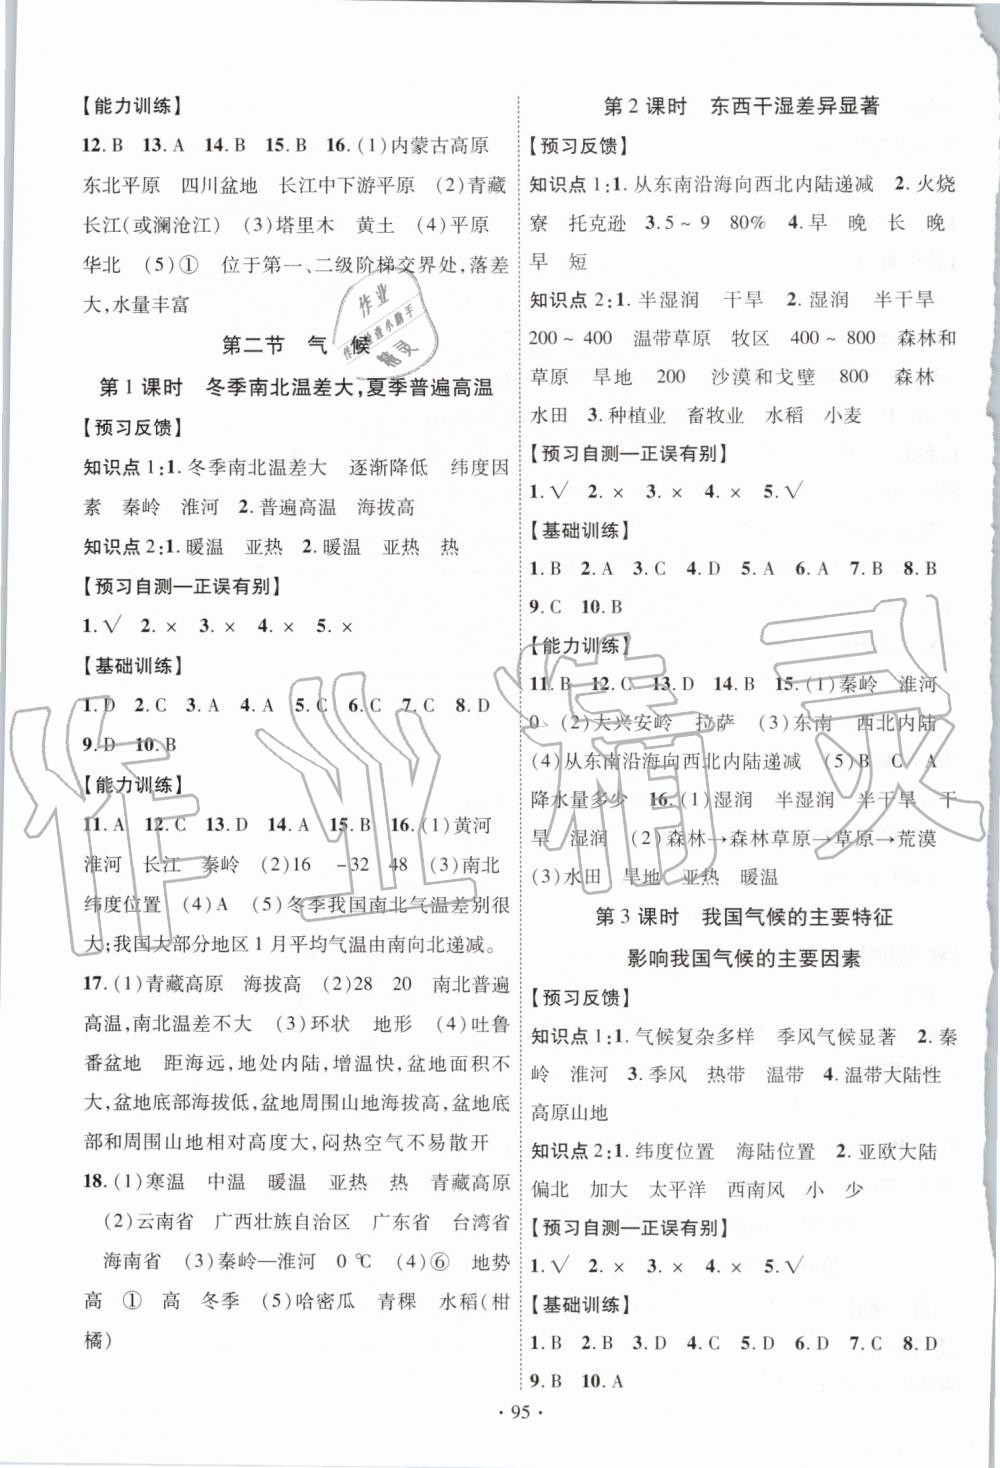 【能力训练】
12. B 13. A 14. B 15. B 16. (1)内蒙古高原
东北平原 四川盆地 长江中下游平原 (2)青藏
长江(或澜沧江) (3)塔里木 黄土 (4)平原
华北 (5)① 位于第一、二级阶梯交界处,落差
大,水量丰富
第二节 气 候
第1课时 冬季南北温差大,夏季普遍高温
【预习反馈】
知识点1:1. 冬季南北温差大 逐渐降低 纬度因
素 秦岭 淮河 2. 普遍高温 海拔高
知识点2:1. 暖温 亚热 2. 暖温 亚热 热
【预习自测—正误有别】
1. √ 2. × 3. × 4. × 5. ×
【基础训练】
1. D 2. C 3. A 4. A 5. C 6. C 7. C 8. D
9. D 10. B
【能力训练】
11. A 12. C 13. D 14. A 15. B 16. (1)黄河
淮河 长江 秦岭 (2)16 -32 48 (3)南北
纬度位置 (4)A (5)冬季我国南北气温差别很
大;我国大部分地区1月平均气温由南向北递减。
17. (1)青藏高原 海拔高 (2)28 20 南北普遍
高温,南北温差不大 (3)环状 地形 (4)吐鲁
番盆地 距海远,地处内陆,增温快,盆地面积不
大,盆地底部海拔低,盆地周围山地海拔高,盆地底
部和周围山地相对高度大,闷热空气不易散开
18. (1)寒温 中温 暖温 亚热 热 青藏高原
(2)云南省 广西壮族自治区 广东省 台湾省
海南省 (3)秦岭—淮河 0 ℃ (4)⑥ 地势
高 ① 高 冬季 (5)哈密瓜 青稞 水稻(柑
橘)
第2课时 东西干湿差异显著
【预习反馈】
知识点1:1. 从东南沿海向西北内陆递减 2. 火烧
寮 托克逊 3. 5~9 80% 4. 早 晚 长 晚
早 短
知识点2:1. 半湿润 干旱 2. 湿润 半干旱
200~400 温带草原 牧区 400~800 森林和
草原 旱地 200 沙漠和戈壁 800 森林
水田 3. 种植业 畜牧业 水稻 小麦
【预习自测—正误有别】
1. √ 2. × 3. × 4. × 5. √
【基础训练】
1. B 2. A 3. C 4. D 5. A 6. A 7. B 8. B
9. C 10. B
【能力训练】
11. B 12. C 13. D 14. B 15. (1)秦岭 淮河
0 (2)大兴安岭 拉萨 (3)东南 西北内陆
(4)从东南沿海向西北内陆递减 (5)B C A
降水量多少 16. (1)湿润 半湿润 半干旱 干
旱 湿润 (2)森林→森林草原→草原→荒漠
(3)水田 旱地 亚热 暖温
第3课时 我国气候的主要特征
影响我国气候的主要因素
【预习反馈】
知识点1:1. 气候复杂多样 季风气候显著 2. 秦
岭 淮河 3. 季风 热带 温带 4. 温带大陆性
高原山地
知识点2:1. 纬度位置 海陆位置 2. 亚欧大陆
偏北 加大 太平洋 西南风 小 少
【预习自测—正误有别】
1. √ 2. × 3. × 4. × 5. √
【基础训练】
1. B 2. B 3. C 4. D 5. D 6. D 7. C 8. D
9. B 10. A
· 95 ·
作业精灵